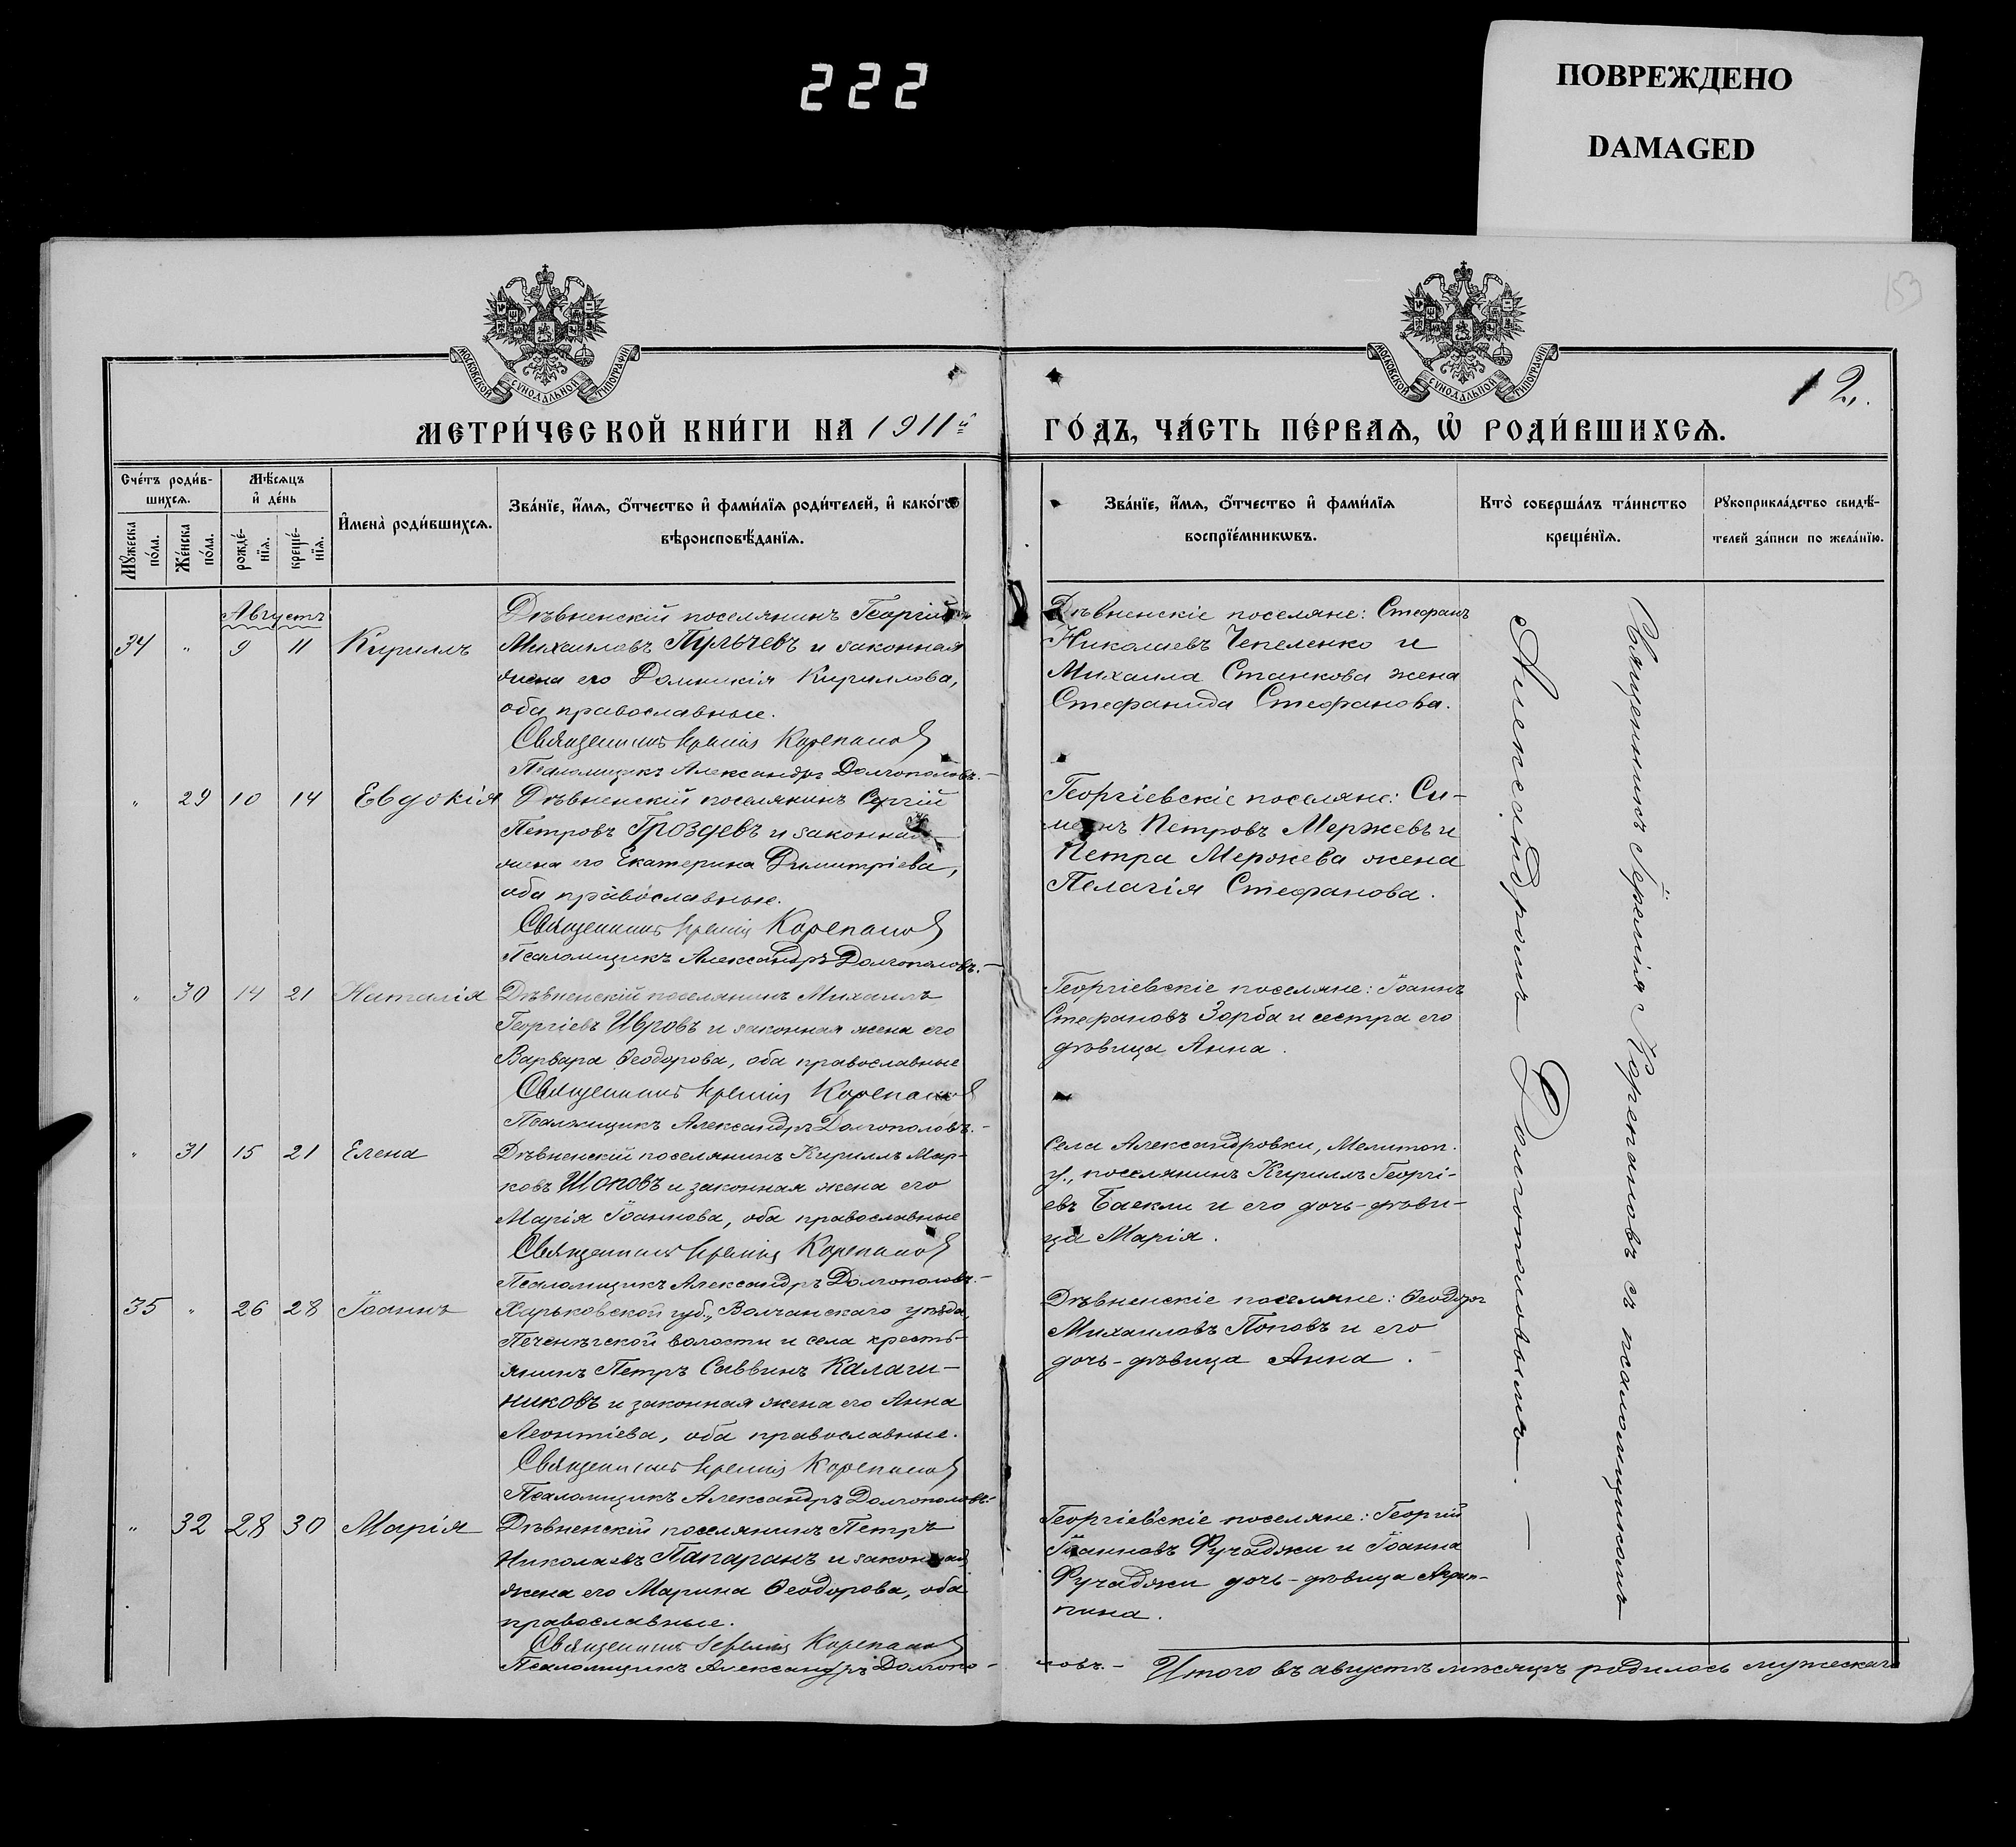 222
ПОВРЕЖДЕНО
DAMAGED
53
МОСКОВСКОЙ СѴНОДАЛЬНОЙ ТИПОГРАФІИ
МОСКОВСКОЙ СѴНОДАЛЬНОЙ ТИПОГРАФІИ
12.
МЕТРИ́ЧЕСКОЙ КНИ́ГИ НА 1911й
ГО́ДЪ, ЧА́СТЬ ПЕ́РВАѦ, Ѡ҆ РОДИ́ВШИХСѦ.
Сче́тъ роди́в-
шихсѧ.
Мѣ́сѧцъ
и҆ де́нь
Мꙋ́жеска по́ла.
Же́нска по́ла.
рожде́-нїѧ.
креще́-нїѧ.
И҆мена̀ роди́вшихсѧ.
Зва́нїе, и҆́мѧ, ѻ҆́тчество и҆ фами́лїѧ роди́телей, и҆ како́гѡ
вѣроисповѣ́данїѧ.
Зва́нїе, и҆́мѧ, ѻ҆́тчество и҆ фами́лїѧ
воспрїе́мникѡвъ.
Кто̀ соверша́лъ та́инство
креще́нїѧ.
Рꙋкоприкла́дство свидѣ́-
телей за́писи по жела́нїю.
Августъ
34 " 9 11 Кириллъ
Дѣвненскій поселянинъ Георгій
Михаиловъ Пульчевъ и законная
жена его Домникія Кириллова,
оба православные.
Священникъ Іеремія Корепановъ
Псаломщикъ Александръ Долгополовъ.
Дѣвненскіе поселяне: Стефанъ
Николаевъ Чепеленко и
Михаила Станкова жена
Стефанида Стефанова.
" 29 10 14 Евдокія
Дѣвненскій поселянинъ Сергій
Петровъ Гроздевъ и законная
жена его Екатерина Димитріева,
оба православные.
Священникъ Іеремія Корепановъ
Псаломщикъ Александръ Долгополовъ.
Георгіевскіе поселяне: Си-
меонъ Петровъ Мержевъ и
Петра Мержева жена
Пелагія Стефанова.
" 30 14 21 Наталія
Дѣвненскій поселянинъ Михаилъ
Георгіевъ Ивровъ и законная жена его
Варвара Ѳеодорова, оба православные
Священникъ Іеремія Корепановъ
Псаломщикъ Александръ Долгополовъ.
Георгіевскіе поселяне: Іоаннъ
Стефановъ Зорба и сестра его
дѣвица Анна.
" 31 15 21 Елена
Дѣвненскій поселянинъ Кириллъ Мар-
ковъ Шоповъ и законная жена его
Марія Іоаннова, оба православные
Священникъ Іеремія Корепановъ
Псаломщикъ Александръ Долгополовъ.
Села Александровки, Мелитоп.
у., поселянинъ Кириллъ Георгі-
евъ Баекли и его дочь-дѣви-
ца Марія.
35 " 26 28 Іоаннъ
Харьковской губ., Волчанскаго уѣзда,
Печенѣгской волости и села кресть-
янинъ Петръ Саввинъ Калаги-
никовъ и законная жена его Анна
Леонтіева, оба православные.
Священникъ Іеремія Корепановъ
Псаломщикъ Александръ Долгополовъ.
Дѣвненскіе поселяне: Ѳеодоръ
Михаиловъ Поповъ и его
дочь-дѣвица Анна.
" 32 28 30 Марія
Дѣвненскій поселянинъ Петръ
Николаевъ Папаранъ и законная
жена его Марина Ѳеодорова, оба
православные.
Священникъ Іеремія Корепановъ
Псаломщикъ Александръ Долгопо-
Георгіевскіе поселяне: Георгій
Іоанновъ Фучаджи и Іоанна
Фучаджи дочь-дѣвица Агрип-
пина.
ловъ.- Итого въ августѣ мѣсяцѣ родилось мужескаго
Священникъ Іеремія Корепановъ съ псаломщикомъ
Александромъ Долгополовымъ.